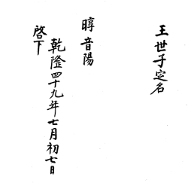 王世子定名
㬀音陽
乾隆四十九年七月初七日
啓下